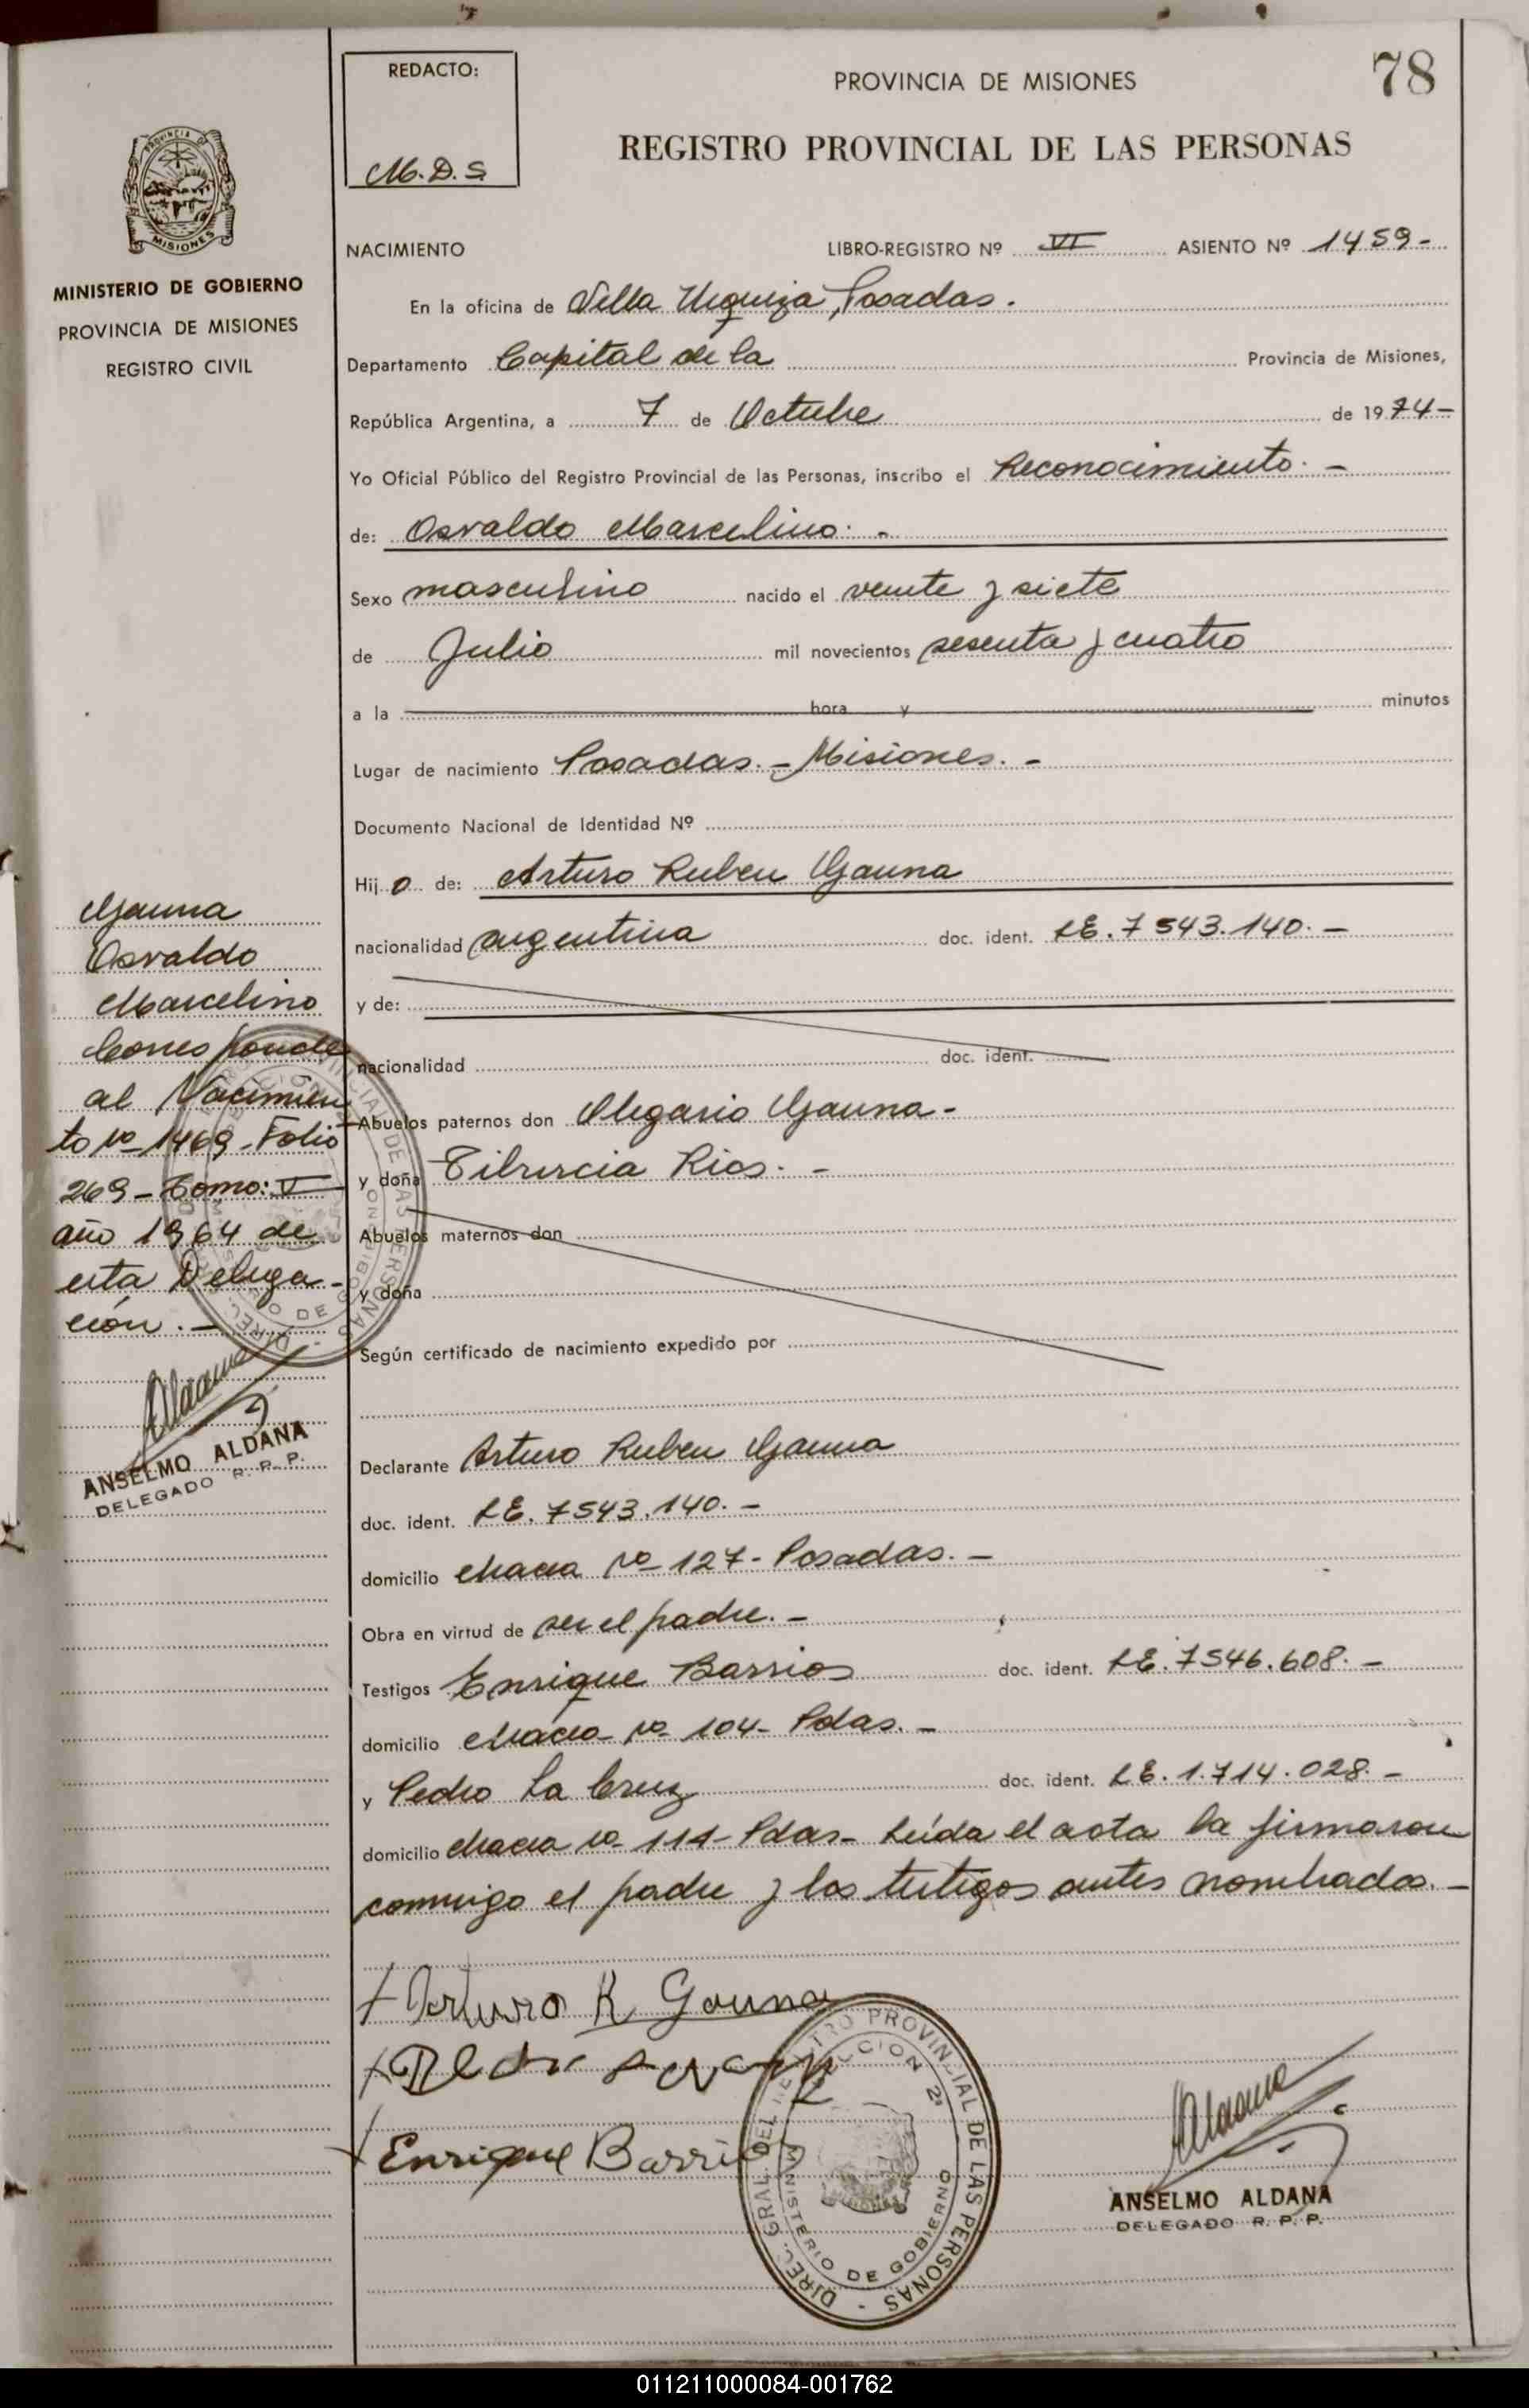 78
REDACTO:
M.D.S.
PROVINCIA DE MISIONES
REGISTRO PROVINCIAL DE LAS PERSONAS
PROVINCIA DE
MISIONES
MINISTERIO DE GOBIERNO
PROVINCIA DE MISIONES
REGISTRO CIVIL
NACIMIENTO LIBRO-REGISTRO Nº VI ASIENTO Nº 1459-
En la oficina de Villa Urquiza, Posadas.
Departamento Capital de la Provincia de Misiones,
República Argentina, a 7 de Octubre de 1974-
Yo Oficial Público del Registro Provincial de las Personas, inscribo el Reconocimiento. -
de: Osvaldo Marcelino. -
Sexo masculino nacido el veinte y siete
de Julio mil novecientos sesenta y cuatro
a la hora y minutos
Lugar de nacimiento Posadas. - Misiones. -
Documento Nacional de Identidad Nº
Hijo de: Arturo Ruben Gauna
nacionalidad argentina doc. ident. LE. 7543.140. -
y de:
nacionalidad doc. ident.
Abuelos paternos don Olegario Gauna-
y doña Tiburcia Rios. -
Abuelos maternos don
y doña
Según certificado de nacimiento expedido por
Declarante Arturo Ruben Gauna
doc. ident. LE. 7543.140. -
domicilio Chacra Nº 127- Posadas. -
Obra en virtud de ser el padre. -
Testigos Enrique Barrios doc. ident. LE. 7546.608. -
domicilio Chacra Nº 104- Pdas. -
y Pedro La Cruz doc. ident. LE. 1.714.028. -
domicilio Chacra Nº 114- Pdas- Leída el acta la firmaron
conmigo el padre y los testigos antes nombrados. -
Gauna
Osvaldo
Marcelino
Corresponde
al Nacimien
to Nº 1469- Folio
269- Tomo: V
año 1964 de
esta Delega-
ción. -
Aldana
ANSELMO ALDANA
DELEGADO R. P. P.
Arturo R. Gauna
Enrique Barrios
DIREC. GRAL. DEL REGISTRO PROVINCIAL DE LAS PERSONAS
MINISTERIO DE GOBIERNO
Aldana
ANSELMO ALDANA
DELEGADO R. P. P.
011211000084-001762